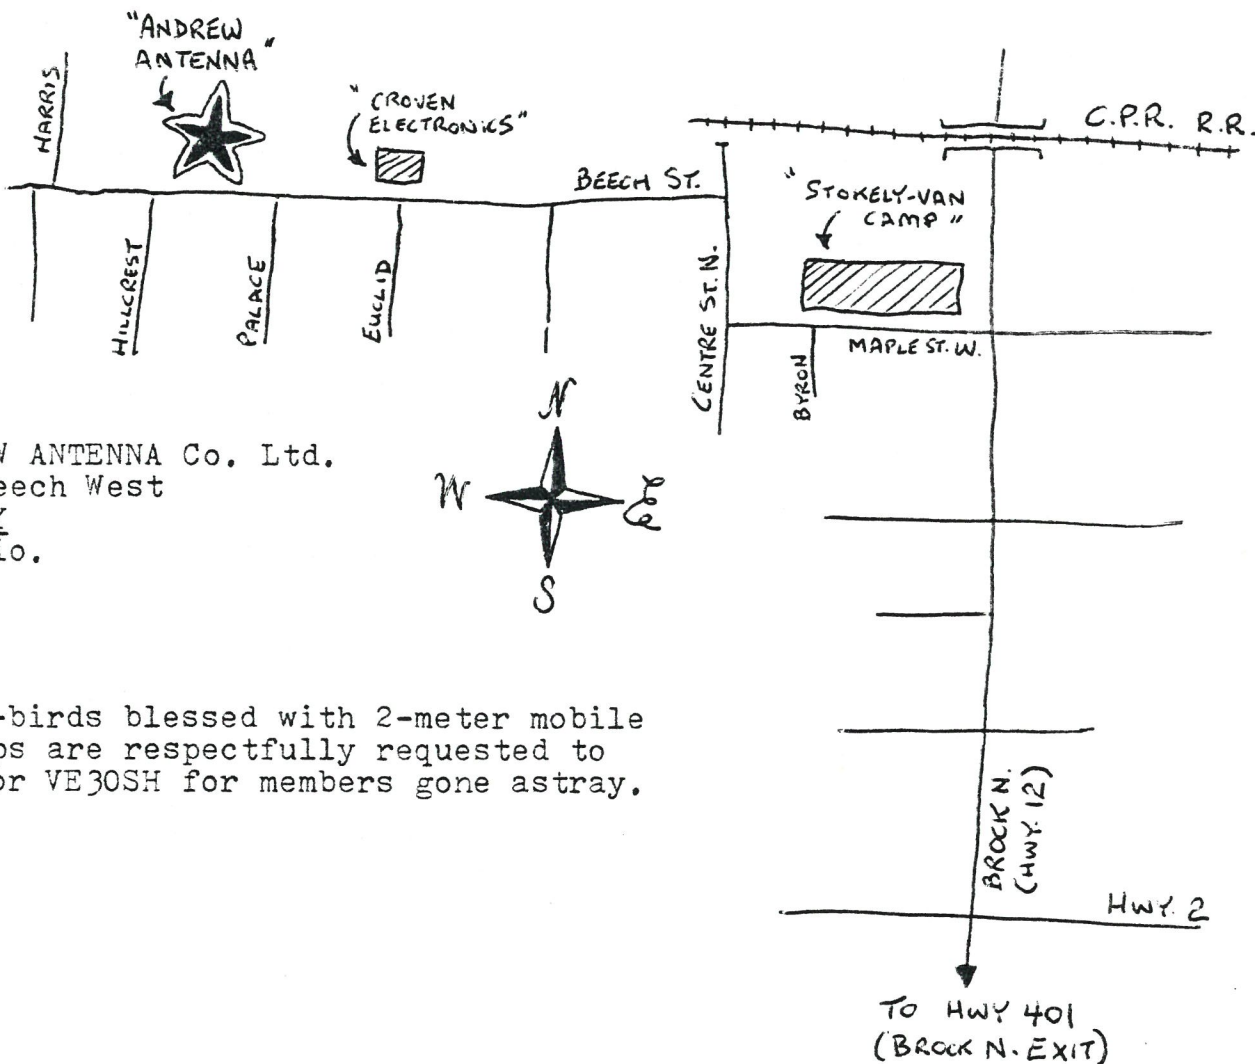 "ANDREW
ANTENNA"
HARRIS
"CROVEN
ELECTRONICS"
C.P.R. R.R.
BEECH ST.
"STOKELY-VAN
CAMP"
HILLCREST
PALACE
EUCLID
CENTRE ST. N.
MAPLE ST. W.
BYRON
N
W
E
S
ANTENNA Co. Ltd.
West
-birds blessed with 2-meter mobile
are respectfully requested to
VE3OSH for members gone astray.
BROCK N.
(HWY. 12)
HWY. 2
TO HWY 401
(BROCK N. EXIT)